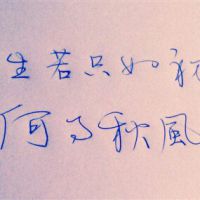 生若只如初
何事秋風